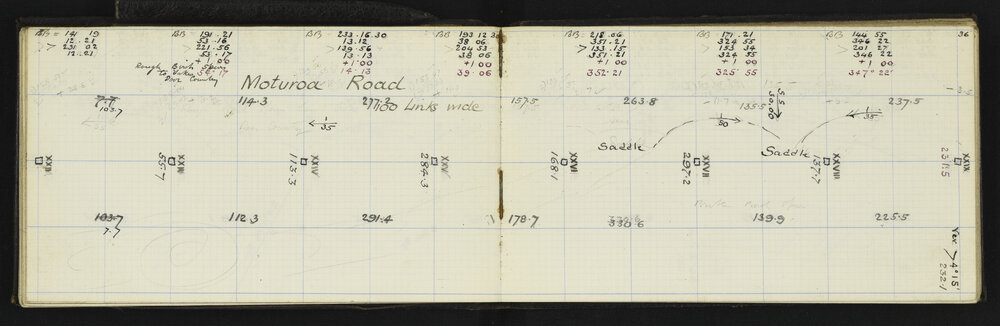 BB = 141 19
12.21
> 231 02
12.21
BB 191.21
53.16
> 221.56
53.17
+ 1.00
54.17
Rough Birch Spurs
BB 233.16 30
13.12
> 139.56
13.13
+1.00
14.13
BB 193 12 3
38 06
> 204 53
38 06
+1 00
39.06
BB 218.06
351.21
> 133.15
351.21
+1 00
352.21
BB 171.21
324 55
> 153 34
324 55
+ 1 00
325 55
BB 144 55
346 22
> 201 27
346 22
+ 1 00
347 22
36
Moturoa Road
100 Links wide
7.7
103.7
114.3
277.2
157.5
263.8
135.5
S.S
50.00
237.5
1/35
1/50
1/35
Saddle
Saddle
XXIII
55.7
113.3
XXV
284.3
168.1
XXVII
297.2
XXVIII
137.7
XXIX
231.5
103.7
7.7
112.3
291.4
178.7
330.6
139.9
225.5
Vex > 4°15'
232.1